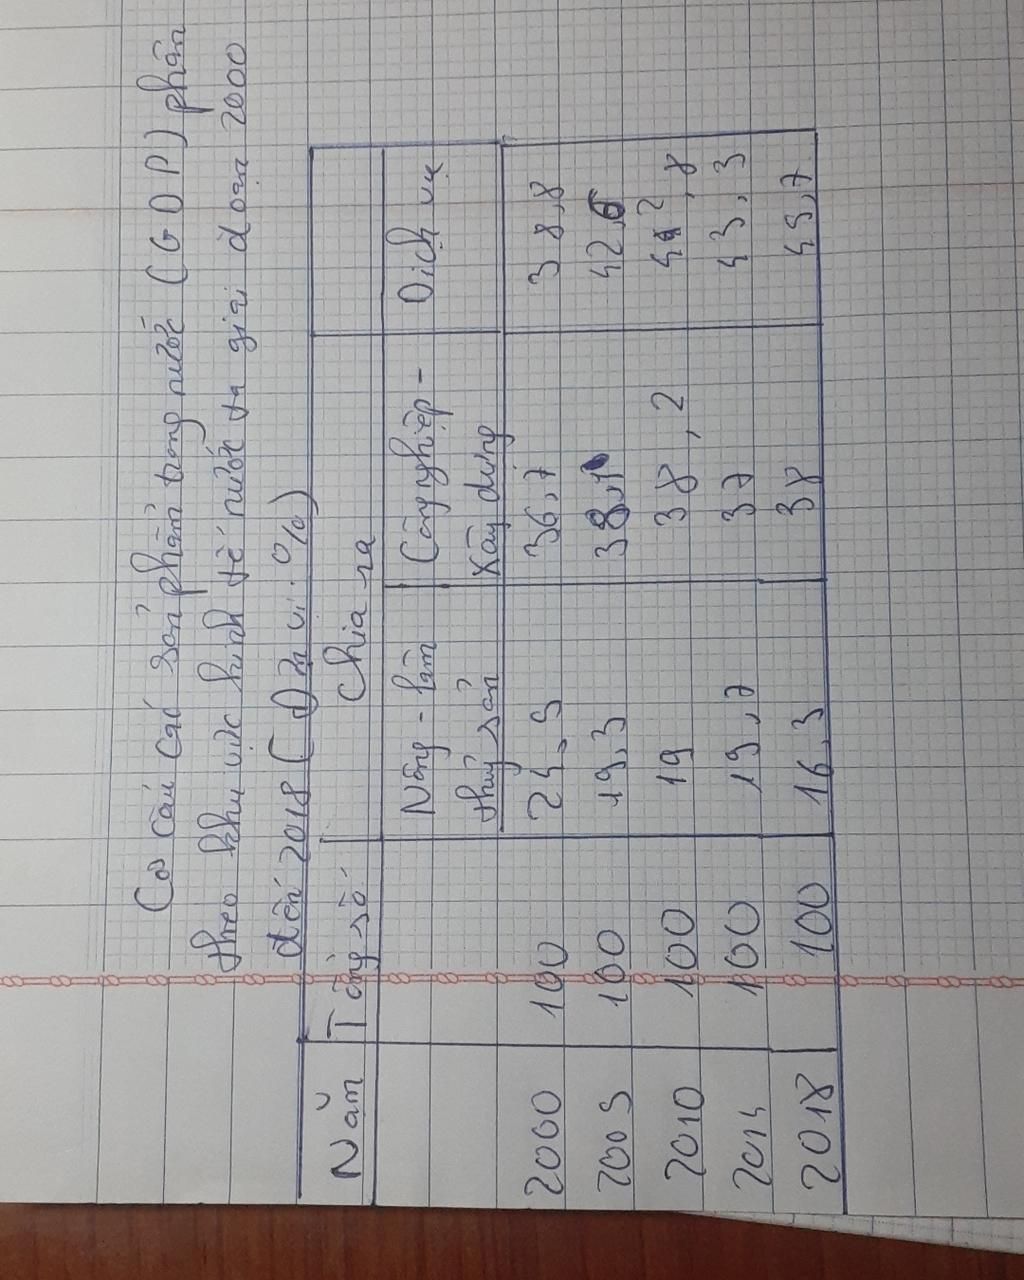 Cơ cấu các sản phẩm trong nước (GDP) phân
theo khu vực kinh tế nước ta giai đoạn 2000
đến 2018 (Đơn vị: %)
Năm Tổng số Chia ra
Nông - lâm Công nghiệp - Dịch vụ
thuỷ sản Xây dựng
2000 100 24,5 36,7 38,8
2005 100 19,3 38,1 42,6
2010 100 19 38,2 42,8
2014 100 19,7 37 43,3
2018 100 16,3 38 45,7